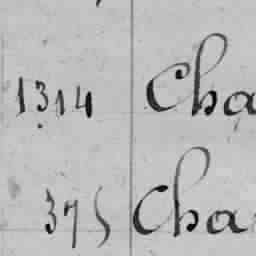 1314 Cha
375 Cha